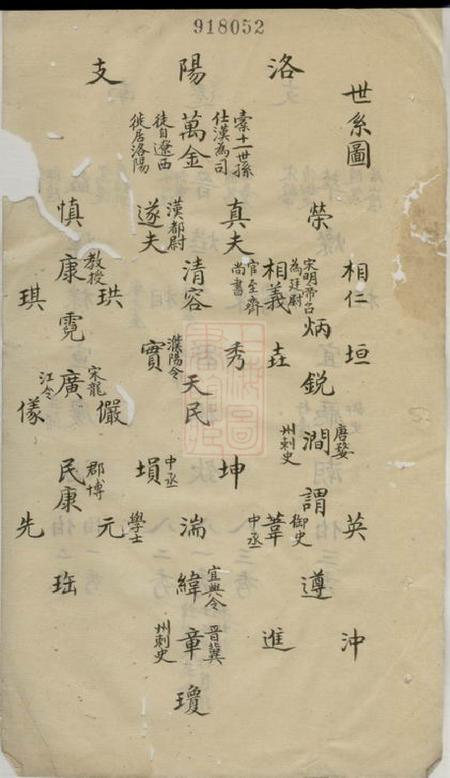 918052
洛陽支
世系圖
萬金
索十一世孫
仕漢為司
徒自遼西
徙居洛陽
真夫
遂夫
漢都尉
清容
秀
實
濮陽令
天民
坤
塤
中丞
湍
緯
宜興令
章
晉冀
州刺史
瓊
榮
宋明帝召
為廷尉
相仁
相義
官至齊
尚書
炳
垣
垚
銳
澗
唐婺
州刺史
謂
御史
中丞
英
葦
遵
沖
進
慎
康
教授
珙
琪
霓
廣
宋龍
江令
儼
儀
民康
郡博
學士
元
先